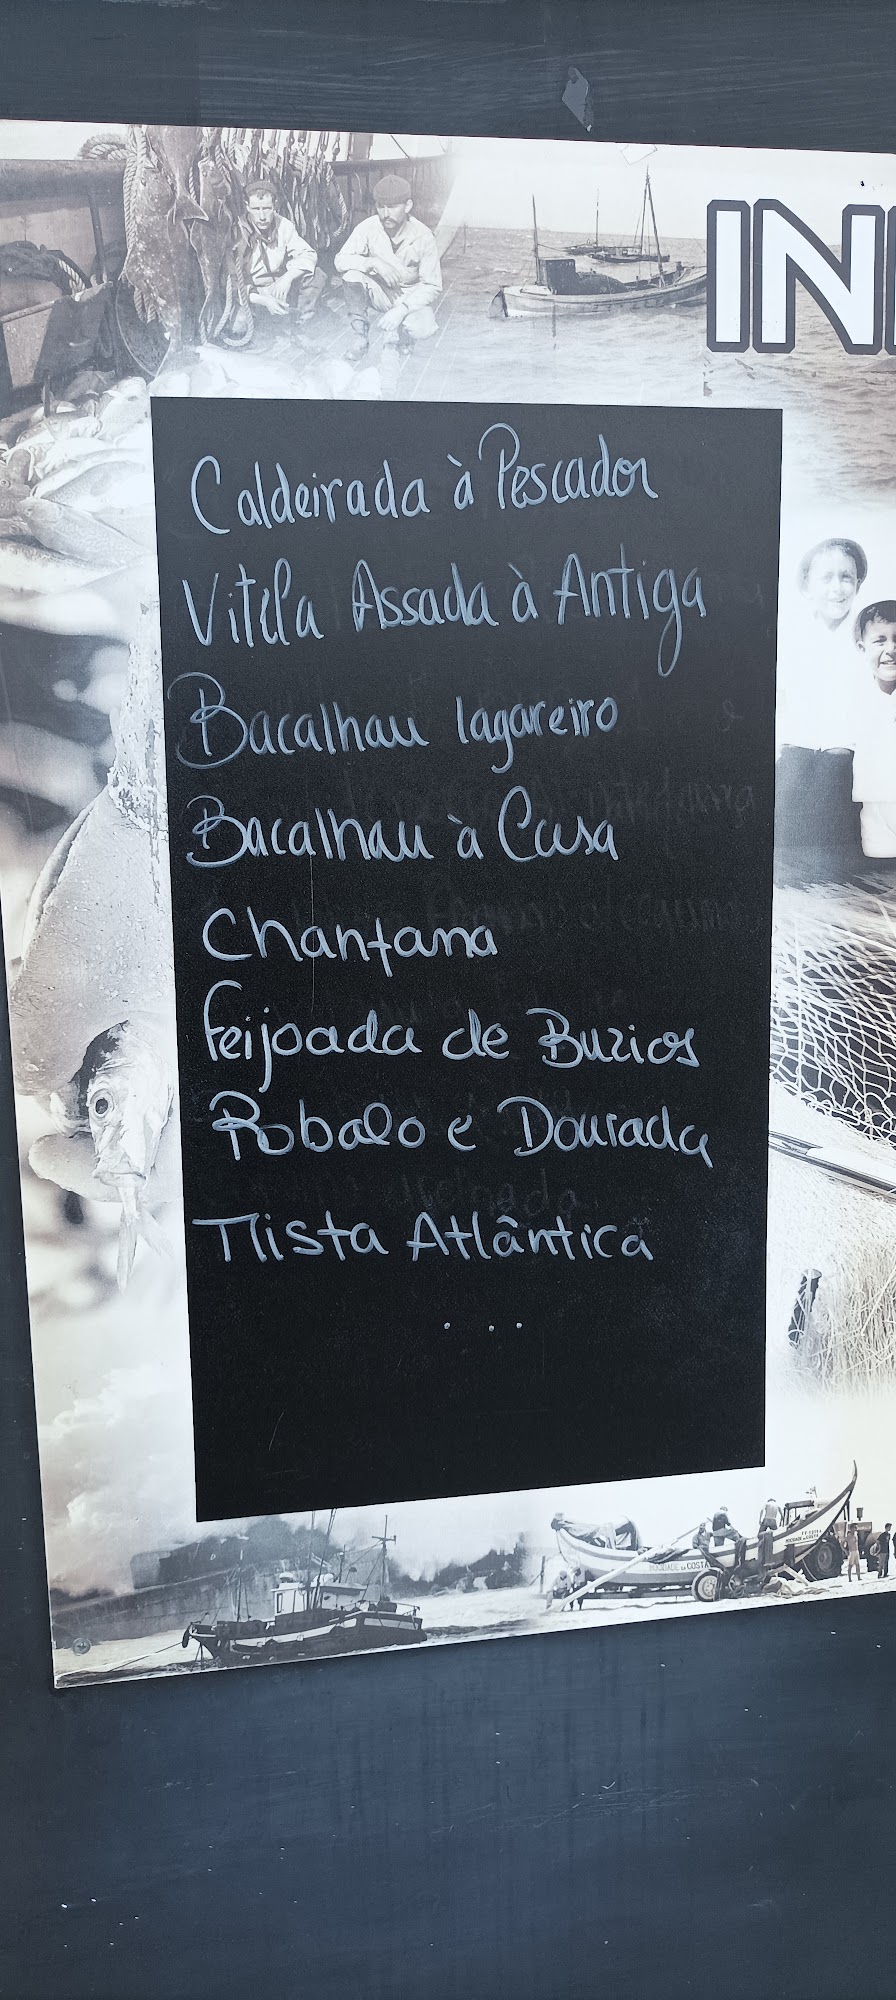 IN
Caldeirada à Pescador
Vitela Assada à Antiga
Bacalhau lagareiro
Bacalhau à Casa
Chanfana
Feijoada de Buzios
Robalo e Dourada
Mista Atlântica
...
COSTA